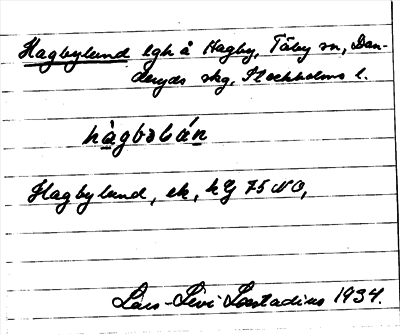 Hagbylund lgh å Hagby, Täby sn, Dan-
deryds skg, Stockholms l.
hàgbəlán
Hagbylund, ek, hg 75 NO,
Lars-Levi Læstadius 1934.